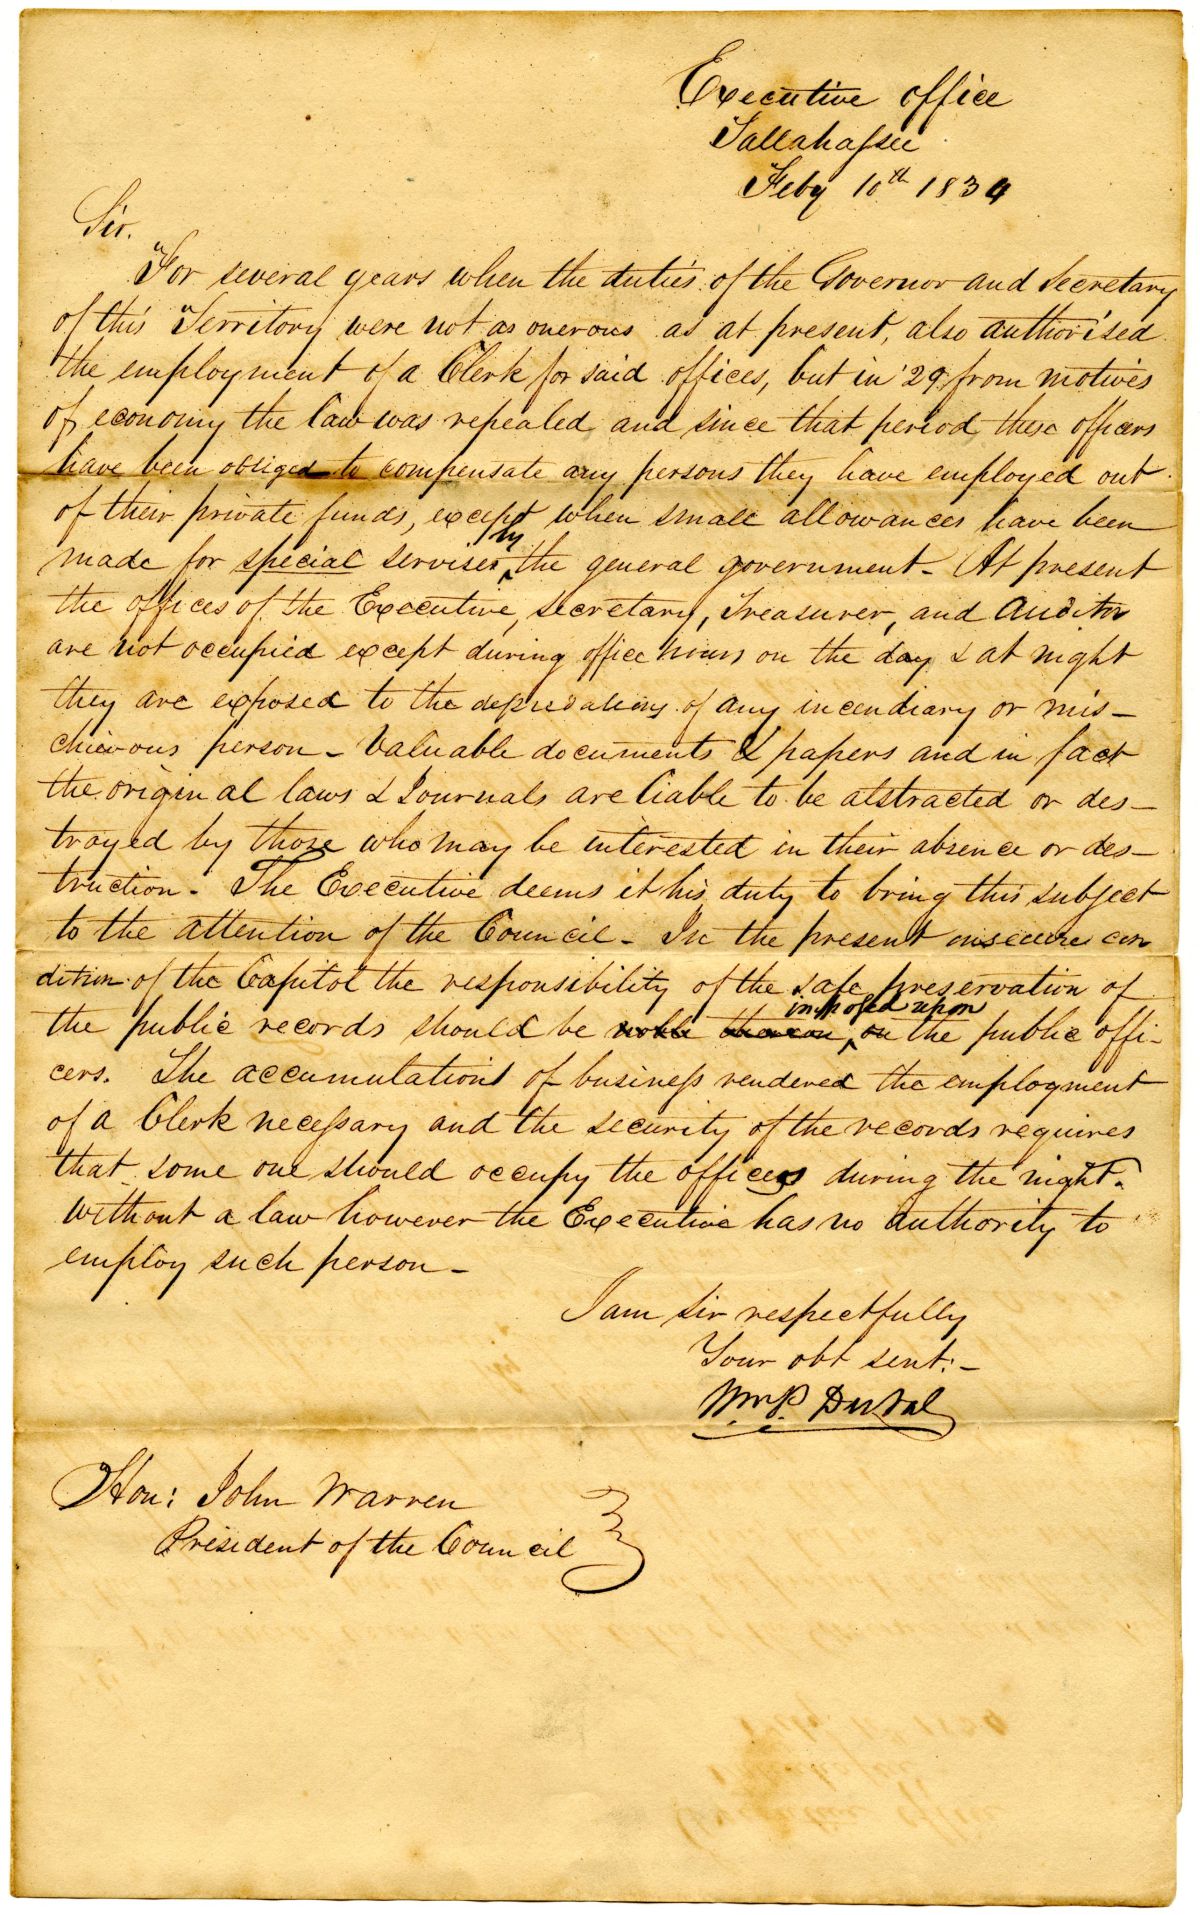 Executive office
Tallahassee
Feby 10th 1834
Sir.
For several years when the duties of the Governor and Secretary
of this Territory were not as onerous as at present, also authorised
the employment of a Clerk for said offices, but in '29 from motives
of economy the law was repealed and since that period these officers
have been obliged to compensate any persons they have employed out
of their private funds, except when small allowances have been
made for special servises by the general government - At present
the offices of the Executive, secretary, Treasurer, and Auditor
are not occupied except during office hours on the day & at night
they are exposed to the depredations of any incendiary or mis-
chievous person - Valuable documents & papers and in fact
the original laws & Journals are liable to be abstracted or des-
troyed by those who may be interested in their absence or des-
truction - The Executive deems it his duty to bring this subject
to the attention of the Council - In the present insecure con
dition of the Capitol the responsibility of the safe preservation of
imposed upon
the public records should be the public offi-
cers. The accumulations of business rendered the employment
of a Clerk necessary and the security of the records requires
that some one should occupy the offices during the night.
Without a law however the Executive has no authority to
employ such person -
I am sir respectfully
Your obt sert: -
Wm. P. DuVal
Hon: John Warren
President of the Council